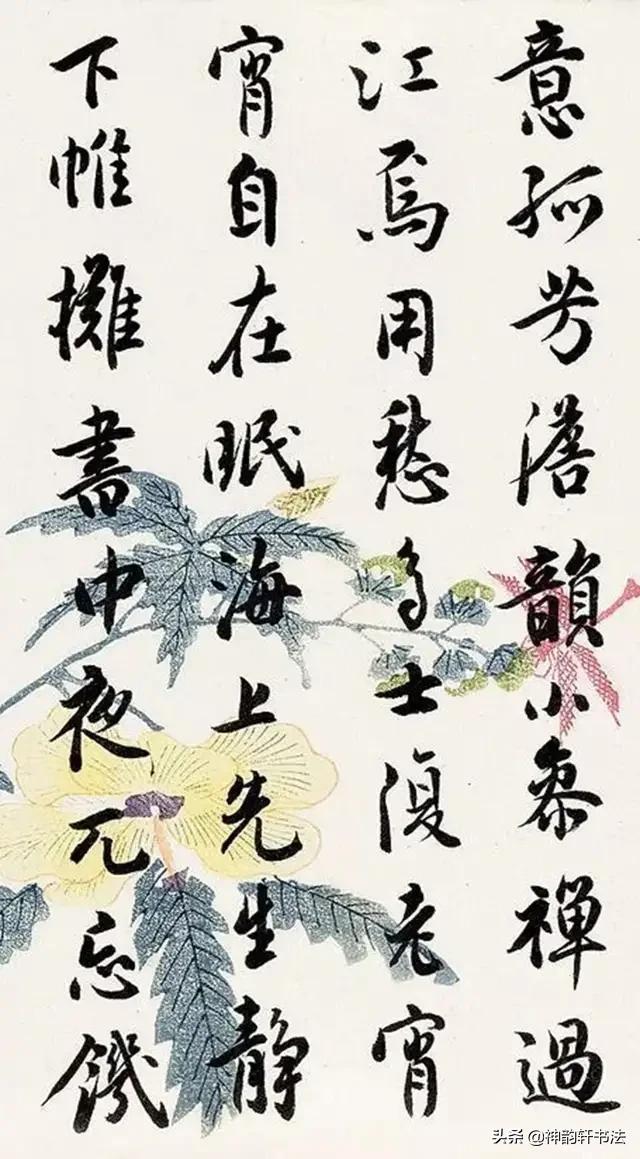 意孤芳澹韻小參禪過
江焉用愁多士復老宵
宵自在眠海上先生靜
下帷攤書中夜兀忘饑
头条 @神韵轩书法